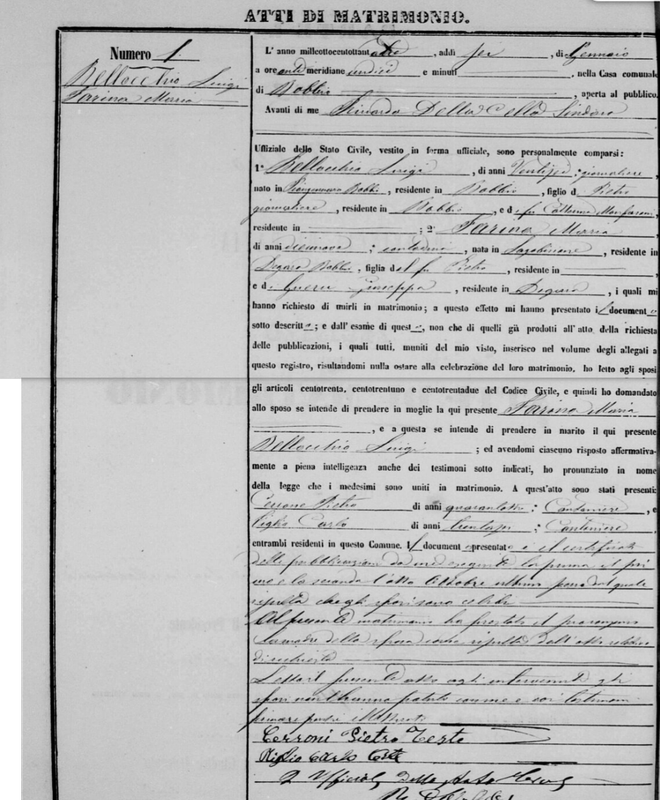 ATTI DI MATRIMONIO.
Numero 1
Bellocchio Luigi
Farina Maria
L' anno milleottocentottantatre, addì sei, di Gennaio
a ore antimeridiane undici e minuti, nella Casa comunale
di Bobbio, aperta al pubblico.
Avanti di me Riccardo Della Cella Sindaco
Uffiziale dello Stato Civile, vestito in forma ufficiale, sono personalmente comparsi:
1° Bellocchio Luigi, di anni Ventisei; giornaliere
nato in Bobbio, residente in Bobbio, figlio di Pietro
giornaliere, residente in Bobbio, e di fu Catterina
residente in; 2° Farina Maria
di anni diecinove; contadina, nata in, residente in
Degara Bobbio, figlia del fu Pietro, residente in
e di Guerci Giuseppa, residente in Degara, i quali mi
hanno richiesto di unirli in matrimonio; a questo effetto mi hanno presentato il documento
sotto descritto; e dall' esame di questo, non che di quelli già prodotti all' atto della richiesta
delle pubblicazioni, i quali tutti, muniti del mio visto, inserisco nel volume degli allegati a
questo registro, risultandomi nulla ostare alla celebrazione del loro matrimonio, ho letto agli sposi
gli articoli centotrenta, centotrentuno e centotrentadue del Codice Civile, e quindi ho domandato
allo sposo se intende di prendere in moglie la qui presente Farina Maria
, e a questa se intende di prendere in marito il qui presente
Bellocchio Luigi; ed avendomi ciascuno risposto affermativa-
mente a piena intelligenza anche dei testimoni sotto indicati, ho pronunziato in nome
della legge che i medesimi sono uniti in matrimonio. A quest'atto sono stati presenti:
Pietro di anni quarantotto; Cantoniere, e
Niglio Carlo di anni trentasei; Cantoniere,
entrambi residenti in questo Comune. Il documento presentato è il certificato
delle pubblicazioni da me eseguite la prima il pri
mo e la seconda l'otto Ottobre ultimo passato dal quale
risulta che gli sposi sono celibi
Al presente matrimonio ha prestato il suo consenso
la madre della sposa come risulta dall'atto
di richiesta
Letto il presente atto agli intervenuti gli
sposi non hanno potuto con me e coi testimoni
firmare perché illetterati
Cerroni Pietro Teste
Niglio Carlo Teste
L'Ufficiale dello Stato Civile